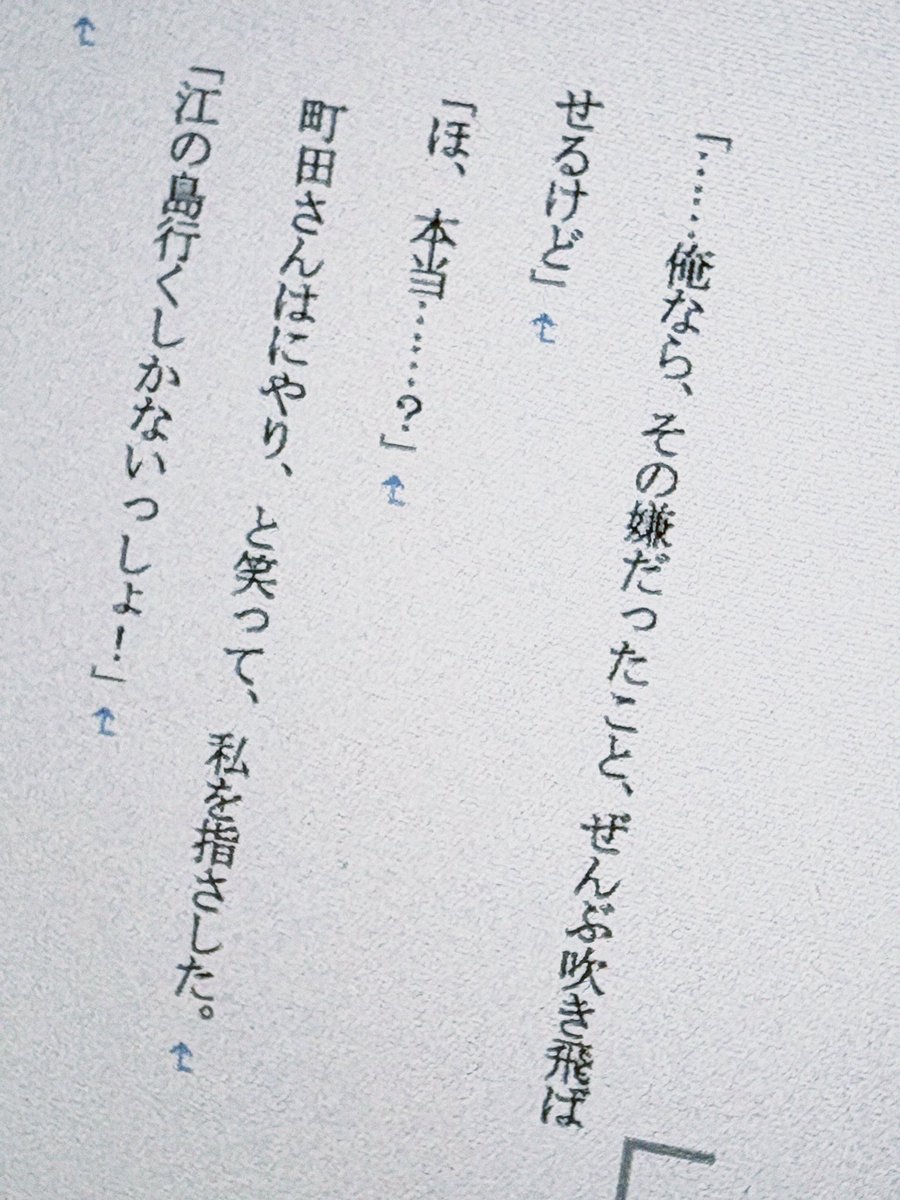 「……俺なら、その嫌だったこと、ぜんぶ吹き飛ば
せるけど」
「ほ、本当……？」
町田さんはにやり、と笑って、私を指さした。
「江の島行くしかないっしょ！」